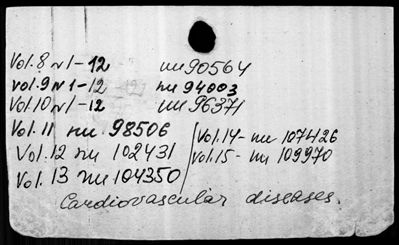 Vol. 8 N 1-12 nu 90564
vol. 9 N 1-12 nu 94003
Vol. 10 N 1-12 nu 96371
Vol. 11 nu 98506
Vol. 12 nu 102431
Vol. 13 nu 104350
Vol. 14- nu 107426
vol. 15- nu 109970
Cardiovascular diseases.